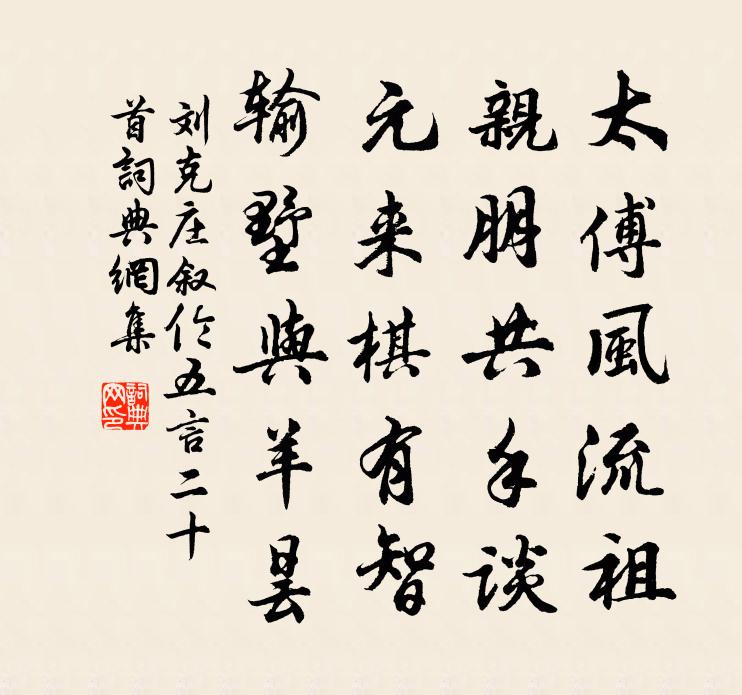 太傅風流祖
親朋共手談
元来棋有智
輸墅與羊曇
刘克庄叙伦五言二十
首詞典網集
詞典网印